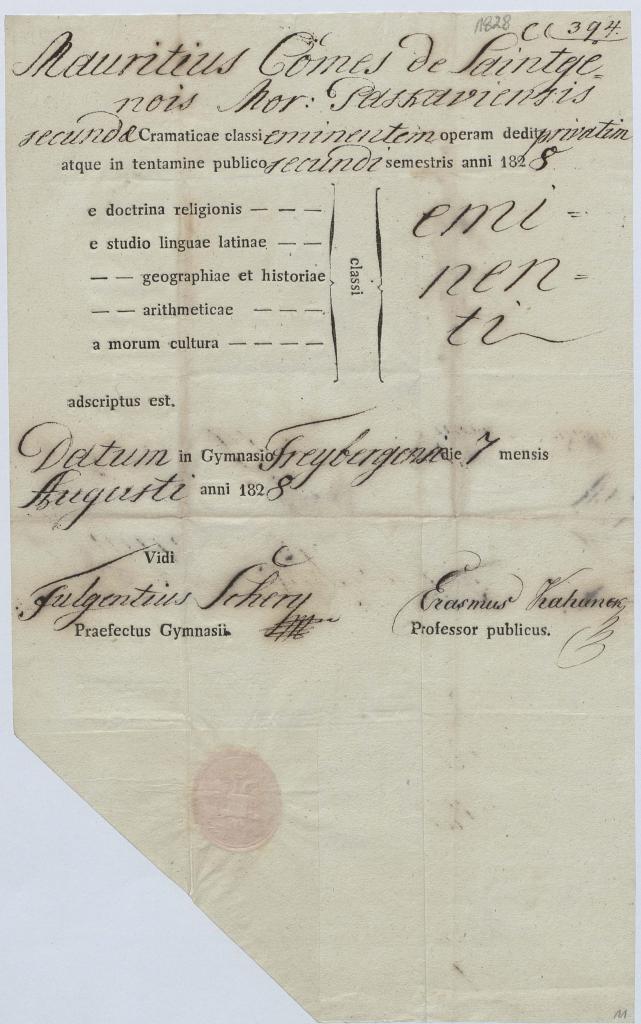 1828 CC 394.
Mauritius Comes de Saintge=
nois Mor: Paskaviensis
secundæ Gramaticae classi eminentem operam dedit privatim
atque in tentamine publico secundi semestris anni 1828
e doctrina religionis — — —
e studio linguae latinae — —
— — geographiae et historiae
— — arithmeticae — — —
a morum cultura — — — —
classi
emi=
nen=
ti
adscriptus est.
Datum in Gymnasio Freybergensi die 7 mensis
Augusti anni 1828
Vidi
Fulgentius Schery
Praefectus Gymnasii.
Erasmus Kahanek
Professor publicus.